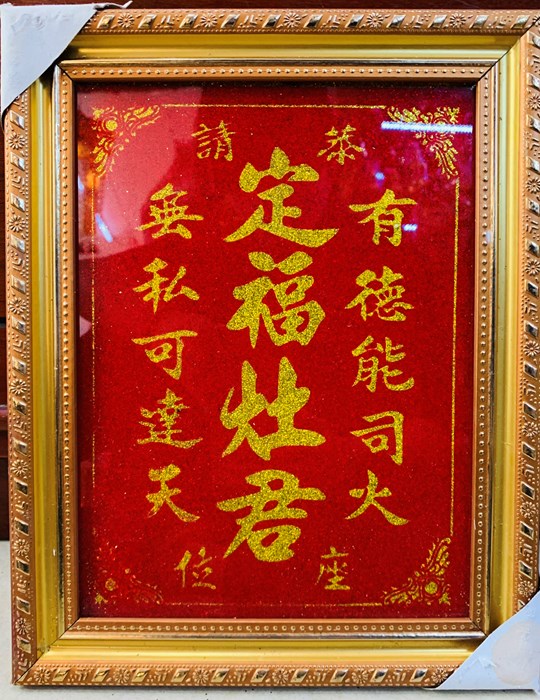 恭請
有德能司火
定福灶君
無私可達天
座位